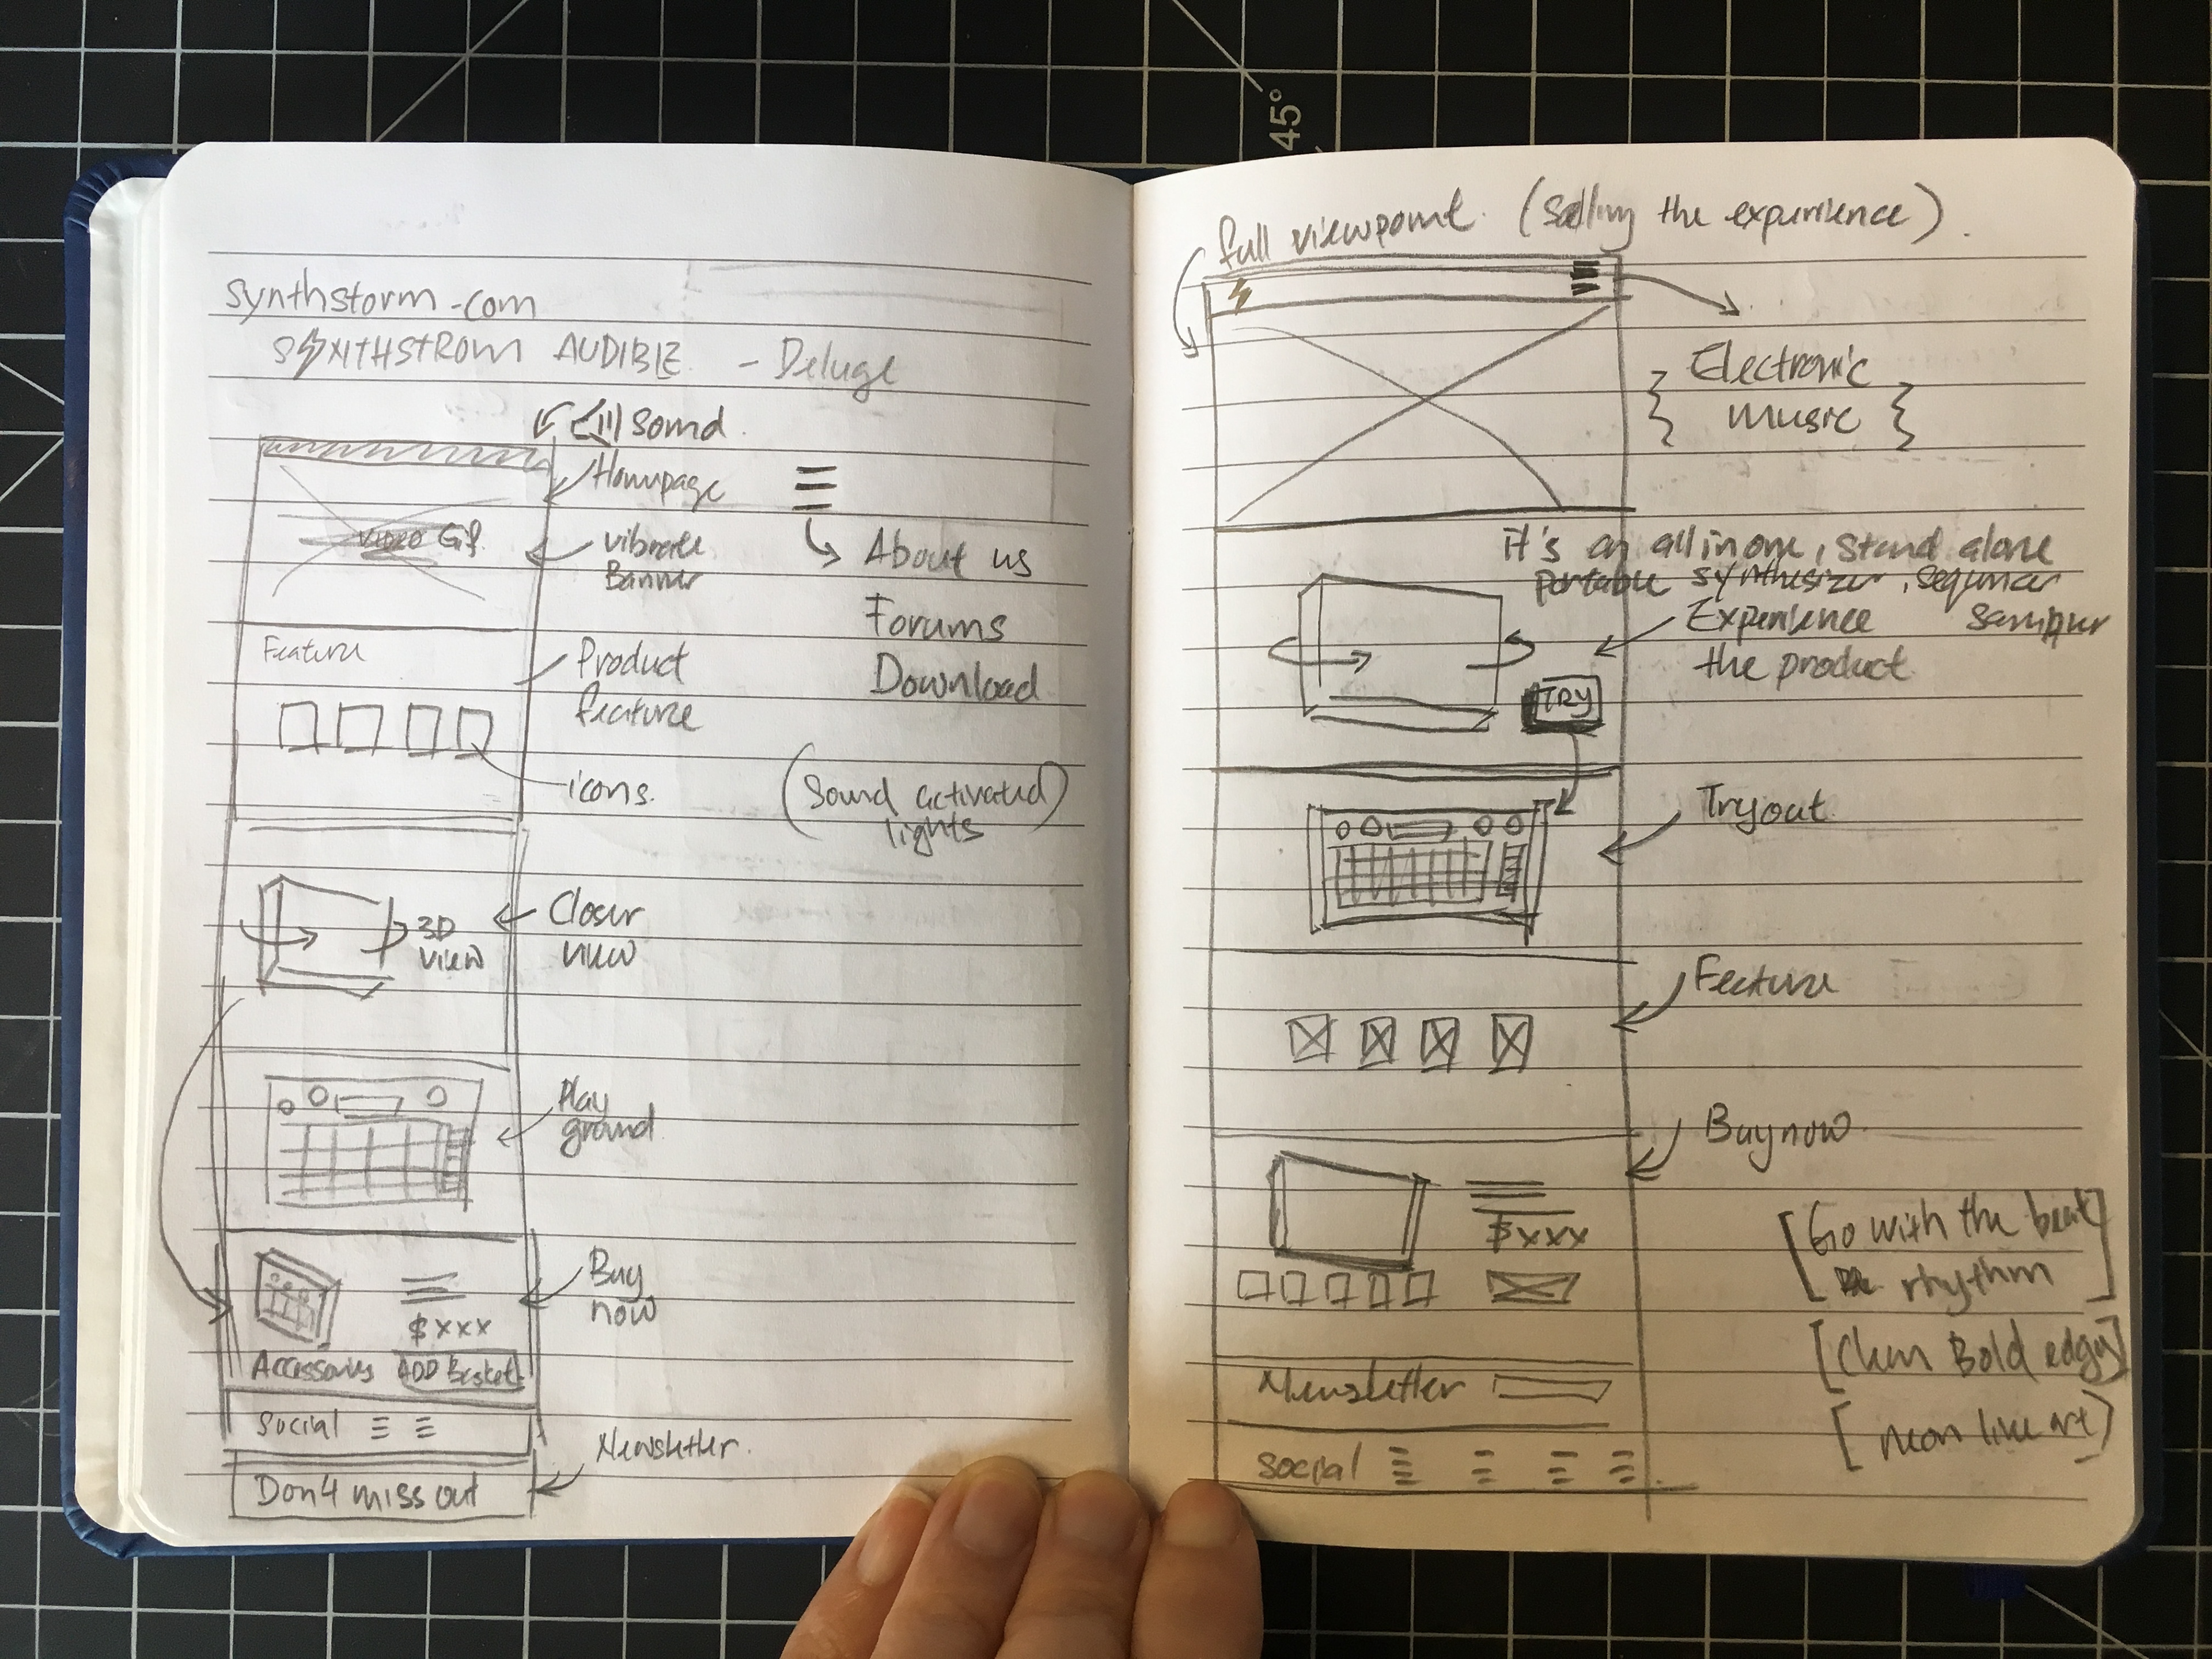 45°
synthstorm.com
SYNTHSTROM AUDIBLE - Deluge
Sound
Homepage
Video Gif
vibrate
Banner
About us
Forums
Download
Feature
Product
feature
icons.
(Sound activated)
lights
3D
view
Closer
view
Play
ground
Buy
now
$xxx
Accessories ADD Basket
Social
Newsletter.
Don't miss out
full viewpoint. (Selling the experience).
Electronic
Music
it's an all in one, stand alone
portable synthesizer, sequncer
sampler
Experience
the product
TRY
Tryout
Feature
Buy now
$xxx
[Go with the beat]
rhythm
[Clean Bold edgy]
[neon like art)
Newsletter
social